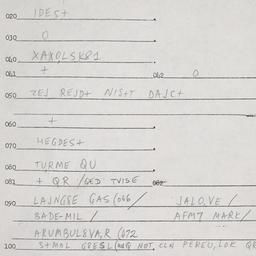 020 IDES+
030 O
040 XAXOLSK81
041 + 042 O
050 ZEJ REJD+ NIS+T DAJC+
060 +
070 HEGDES+
080 TURME QU
081 + QR /GED TVISE 082
090 LAJNGBE GAS(066/ JALO,VE/
BADE-MIL / AFM7 MARK/
ARUMBULEVA,R (072
100 S+MOL NOT, CLN PEREU,LOK QR